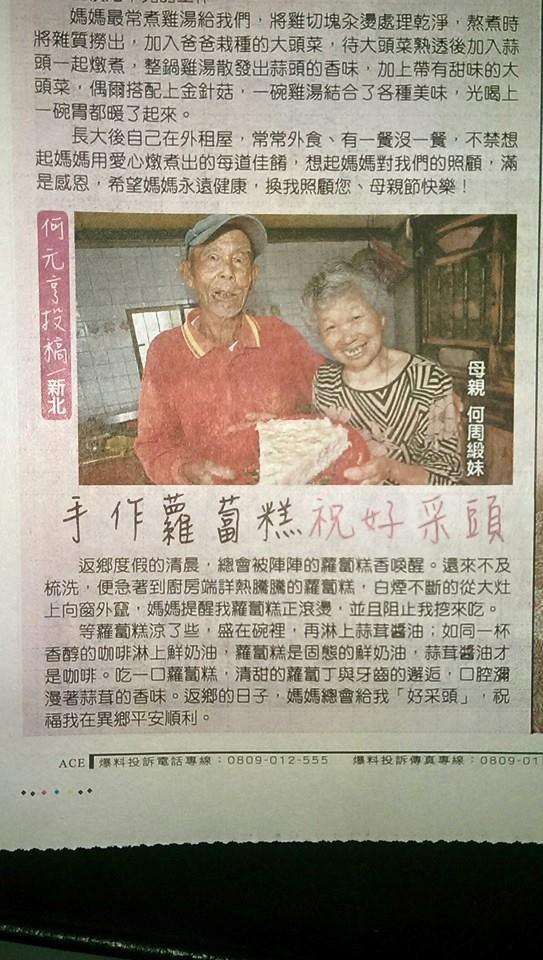 媽媽最常煮雞湯給我們，將雞切塊汆燙處理乾淨，熬煮時
將雜質撈出，加入爸爸栽種的大頭菜，待大頭菜熟透後加入蒜
頭一起燉煮，整鍋雞湯散發出蒜頭的香味，加上帶有甜味的大
頭菜，偶爾搭配上金針菇，一碗雞湯結合了各種美味，光喝上
一碗胃都暖了起來。
長大後自己在外租屋，常常外食、有一餐沒一餐，不禁想
起媽媽用愛心燉煮出的每道佳餚，想起媽媽對我們的照顧，滿
是感恩，希望媽媽永遠健康，換我照顧您、母親節快樂！
何元亨投稿／新北
母親 何周緞妹
手作蘿蔔糕祝好采頭
返鄉度假的清晨，總會被陣陣的蘿蔔糕香喚醒。還來不及
梳洗，便急著到廚房端詳熱騰騰的蘿蔔糕，白煙不斷的從大灶
上向窗外竄，媽媽提醒我蘿蔔糕正滾燙，並且阻止我挖來吃。
等蘿蔔糕涼了些，盛在碗裡，再淋上蒜茸醬油；如同一杯
香醇的咖啡淋上鮮奶油，蘿蔔糕是固態的鮮奶油，蒜茸醬油才
是咖啡。吃一口蘿蔔糕，清甜的蘿蔔丁與牙齒的邂逅，口腔瀰
漫著蒜茸的香味。返鄉的日子，媽媽總會給我「好采頭」，祝
福我在異鄉平安順利。
ACE 爆料投訴電話專線：0809-012-555 爆料投訴傳真專線：0809-01